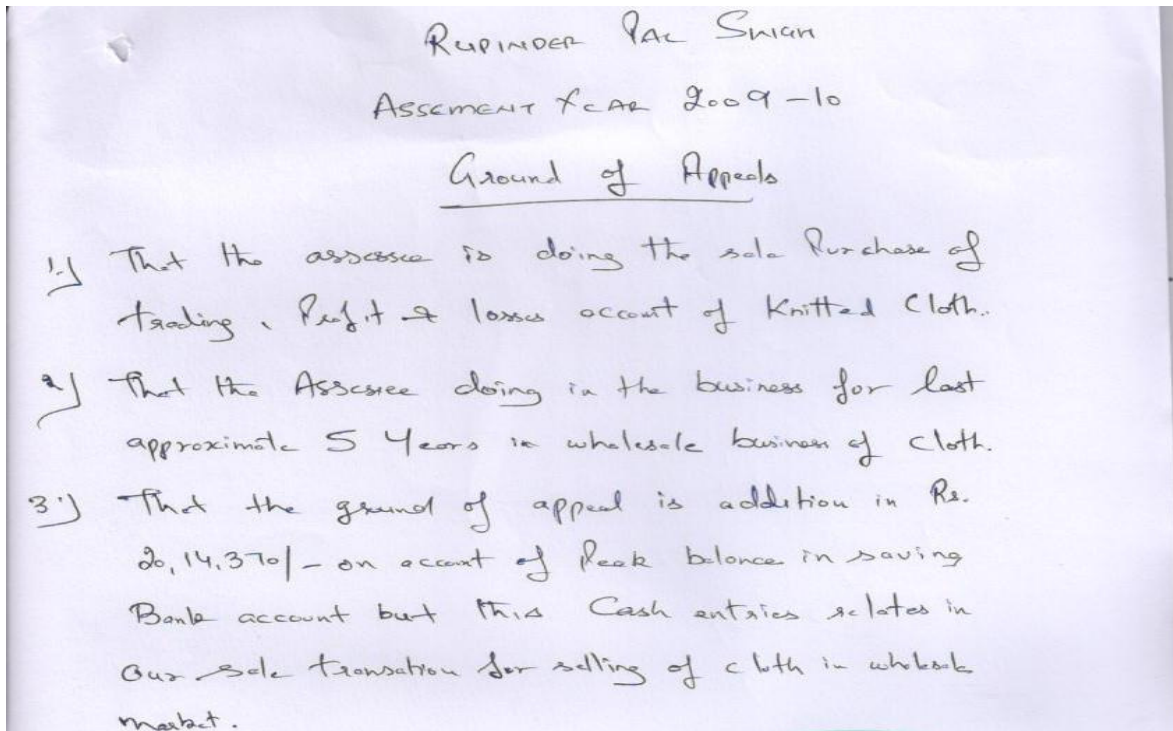 RUPINDER PAL SINGH
ASSEMENT YEAR 2009-10
Ground of Appeals
1.) That the assessee is doing the sale Purchase of
trading, Profit & losses account of Knitted Cloth.
2) That the Assessee doing in the business for last
approximate 5 Years in wholesale business of Cloth.
3.) That the ground of appeal is addition in Rs.
20,14,370/- on account of Peak balance in saving
Bank account but this Cash entries relates in
Our sale transation for selling of cloth in wholesale
market.